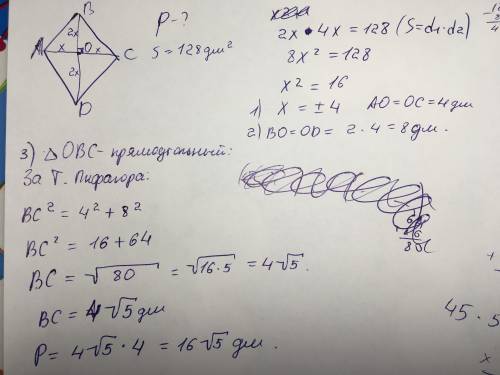 B
2x
A x O x C
2x
D
P-?
S = 128 дм²
2x • 4x = 128 (S=d1·d2)
8x² = 128
x² = 16
1) x = ± 4 AO=OC=4дм
2) BO=OD= 2·4=8дм.
3) △OBC-прямоугольный:
За Т. Пифагора:
BC² = 4² + 8²
BC² = 16 + 64
BC = √80 = √16·5 = 4√5.
BC = 4√5 дм
P = 4√5 · 4 = 16√5 дм.
45 · 5